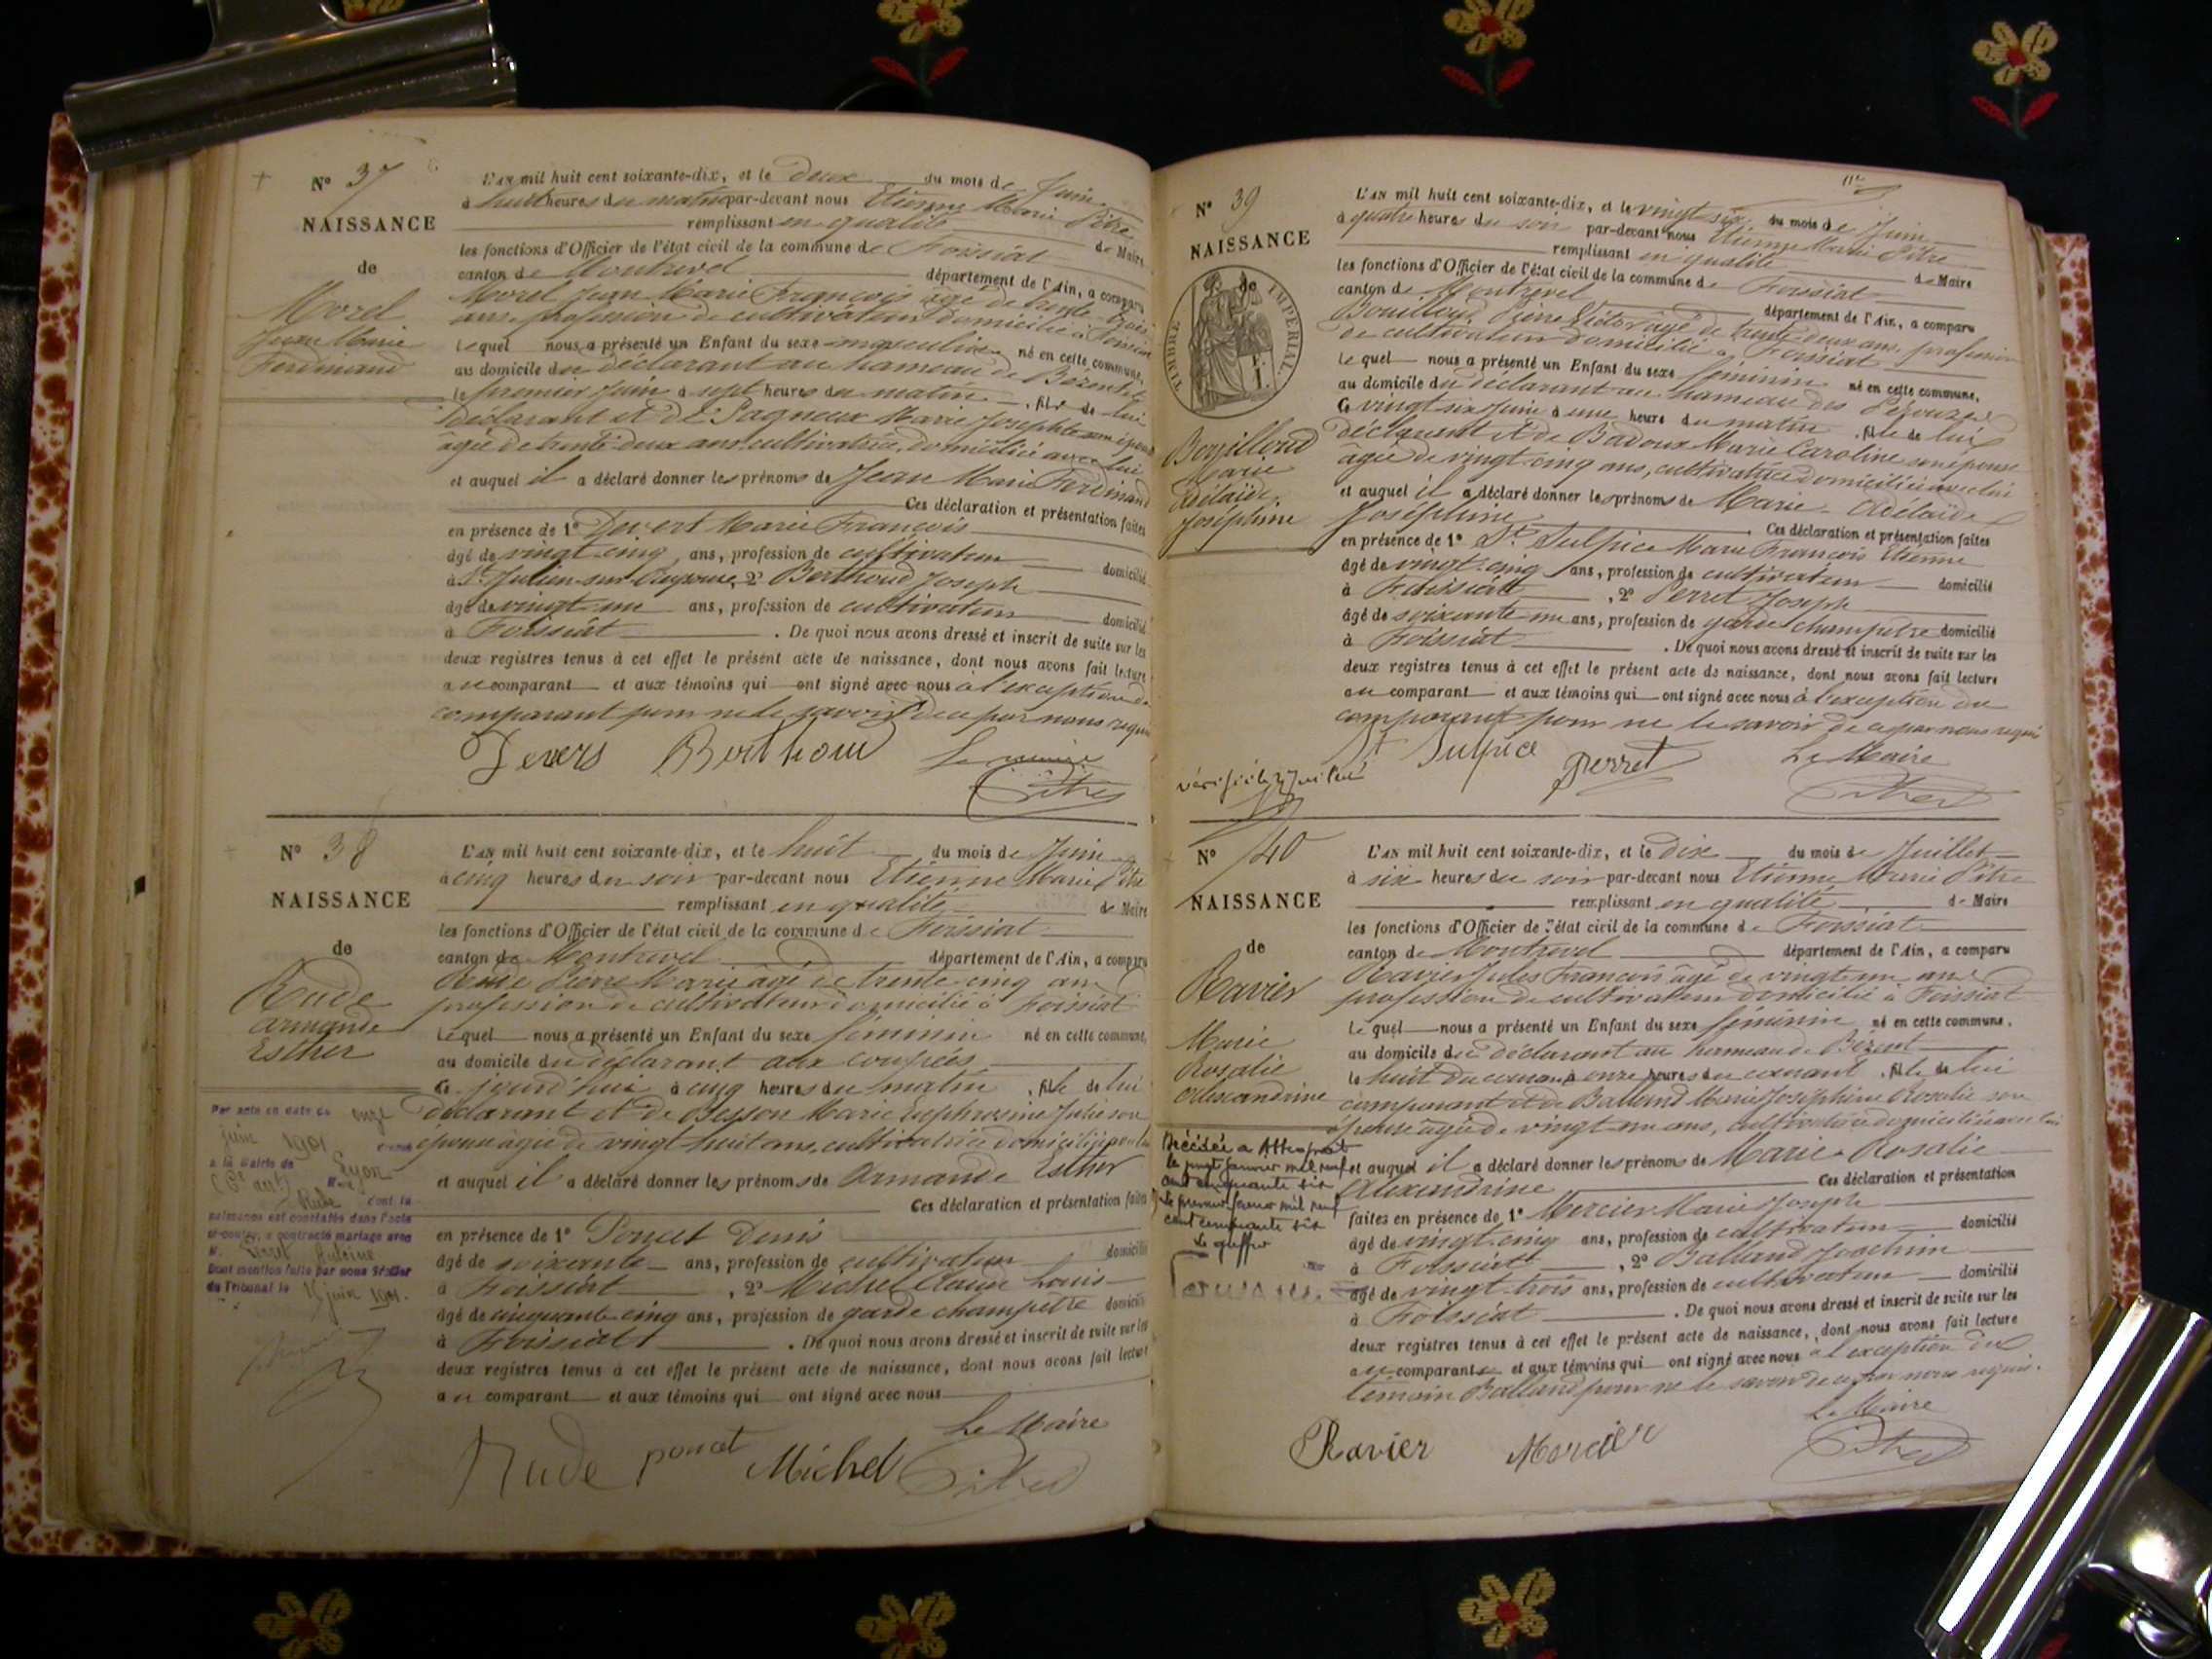 N° 37
NAISSANCE
de
Morel
Jean Marie
Ferdinand
L'AN mil huit cent soixante-dix, et le deux du mois de Juin
à huit heures du matin par-devant nous Etienne Marie Pitre
remplissant en qualité de Maire
les fonctions d'Officier de l'état civil de la commune de Foissiat
canton de Montrevel département de l'Ain, a comparu
Morel Jean Marie François âgé de trente-trois
ans, profession de cultivateur domicilié à Foissiat
Lequel nous a présenté un Enfant du sexe masculin né en cette commune,
au domicile du déclarant au hameau de
le premier Juin à sept heures du matin, fils de lui
Déclarant et de Pagneux Marie Josephte son épouse
âgée de trente-deux ans, cultivatrice, domiciliée avec lui
et auquel il a déclaré donner les prénoms de Jean Marie Ferdinand
Ces déclaration et présentation faites
en présence de 1° Devert Marie François
âgé de vingt-cinq ans, profession de cultivateur domicilié
à St Julien-sur-Reyssouze, 2° Berthoud Joseph
âgé de vingt-un ans, profession de cultivateur domicilié
à Foissiat. De quoi nous avons dressé et inscrit de suite sur les
deux registres tenus à cet effet le présent acte de naissance, dont nous avons fait lecture
au comparant et aux témoins qui ont signé avec nous à l'exception du
comparant pour ne le savoir de ce par nous requis
Devers Berthoud Le maire
Pitre
N° 38
NAISSANCE
de
Rude
Armande
Esther
Par acte en date du onze
juin 1901
à la Mairie de Lyon
(6e art)
Rude dont la
naissance est constatée dans l'acte
ci-contre, a contracté mariage avec
M. Antoine
Dont mention faite par nous Greffier
du Tribunal le juin 1901.
L'AN mil huit cent soixante-dix, et le huit du mois de Juin
à cinq heures du soir par-devant nous Etienne Marie Pitre
remplissant en qualité de Maire
les fonctions d'Officier de l'état civil de la commune de Foissiat
canton de Montrevel département de l'Ain, a comparu
Rude Pierre Marie âgé de trente-cinq ans
profession de cultivateur domicilié à Foissiat
Lequel nous a présenté un Enfant du sexe féminin né en cette commune,
au domicile du déclarant aux
Ce jourd'hui à cinq heures du matin, fille de lui
déclarant et de Besson Marie Euphrosine Julie son
épouse âgée de vingt-huit ans, cultivatrice domiciliée
et auquel il a déclaré donner les prénoms de Armande Esther
Ces déclaration et présentation faites
en présence de 1° Poncet Denis
âgé de soixante ans, profession de cultivateur domicilié
à Foissiat, 2° Michel Claude Louis
âgé de cinquante-cinq ans, profession de garde champêtre domicilié
à Foissiat. De quoi nous avons dressé et inscrit de suite sur les
deux registres tenus à cet effet le présent acte de naissance, dont nous avons fait lecture
au comparant et aux témoins qui ont signé avec nous
Le Maire
Rude poncet Michel Pitre
N° 39
NAISSANCE
de
TIMBRE IMPERIAL
Bouilloud
Marie
Adélaïde
Joséphine
L'AN mil huit cent soixante-dix, et le vingt-six du mois de Juin
à quatre heures du soir par-devant nous Etienne Marie Pitre
remplissant en qualité de Maire
les fonctions d'Officier de l'état civil de la commune de Foissiat
canton de Montrevel département de l'Ain, a comparu
Bouilloud Pierre Victor âgé de trente-deux ans, profession
de cultivateur domicilié à Foissiat
Le quel nous a présenté un Enfant du sexe féminin né en cette commune,
au domicile du déclarant au hameau des
Ce vingt-six Juin à une heure du matin, fille de lui
déclarant et de Badoux Marie Caroline son épouse
âgée de vingt-cinq ans, cultivatrice domiciliée avec lui
et auquel il a déclaré donner les prénoms de Marie Adélaïde
Joséphine Ces déclaration et présentation faites
en présence de 1° St Sulpice Marie François Etienne
âgé de vingt-cinq ans, profession de cultivateur domicilié
à Foissiat, 2° Perret Joseph
âgé de soixante-un ans, profession de garde champêtre domicilié
à Foissiat. De quoi nous avons dressé et inscrit de suite sur les
deux registres tenus à cet effet le présent acte de naissance, dont nous avons fait lecture
au comparant et aux témoins qui ont signé avec nous à l'exception du
comparant pour ne le savoir de ce par nous requis
St Sulpice perret Le Maire
Pitre
vérifié le 2 Juillet
N° 40
NAISSANCE
de
Ravier
Marie
Rosalie
Alexandrine
Décédée à Attignat
le vingt janvier mil neuf
cent cinquante six
Le premier février mil neuf
cent cinquante six
Le greffier
L'AN mil huit cent soixante-dix, et le dix du mois de Juillet
à six heures du soir par-devant nous Etienne Marie Pitre
remplissant en qualité de Maire
les fonctions d'Officier de l'état civil de la commune de Foissiat
canton de Montrevel département de l'Ain, a comparu
Ravier Jules François âgé de vingt-un ans
profession de cultivateur domicilié à Foissiat
Le quel nous a présenté un Enfant du sexe féminin né en cette commune,
au domicile du déclarant au hameau de
le huit du courant à onze heures du, fille de lui
comparant et de Balland Marie Joséphine Rosalie son
épouse âgée de vingt-un ans, cultivatrice domiciliée avec lui
et auquel il a déclaré donner les prénoms de Marie Rosalie
Alexandrine Ces déclaration et présentation
faites en présence de 1° Mercier Marie Joseph
âgé de vingt-cinq ans, profession de cultivateur domicilié
à Foissiat, 2° Balland Joachim
âgé de vingt-trois ans, profession de cultivateur domicilié
à Foissiat. De quoi nous avons dressé et inscrit de suite sur les
deux registres tenus à cet effet le présent acte de naissance, dont nous avons fait lecture
au comparant et aux témoins qui ont signé avec nous à l'exception du
témoin Balland pour ne le savoir de ce par nous requis.
Le Maire
Ravier Mercier Pitre